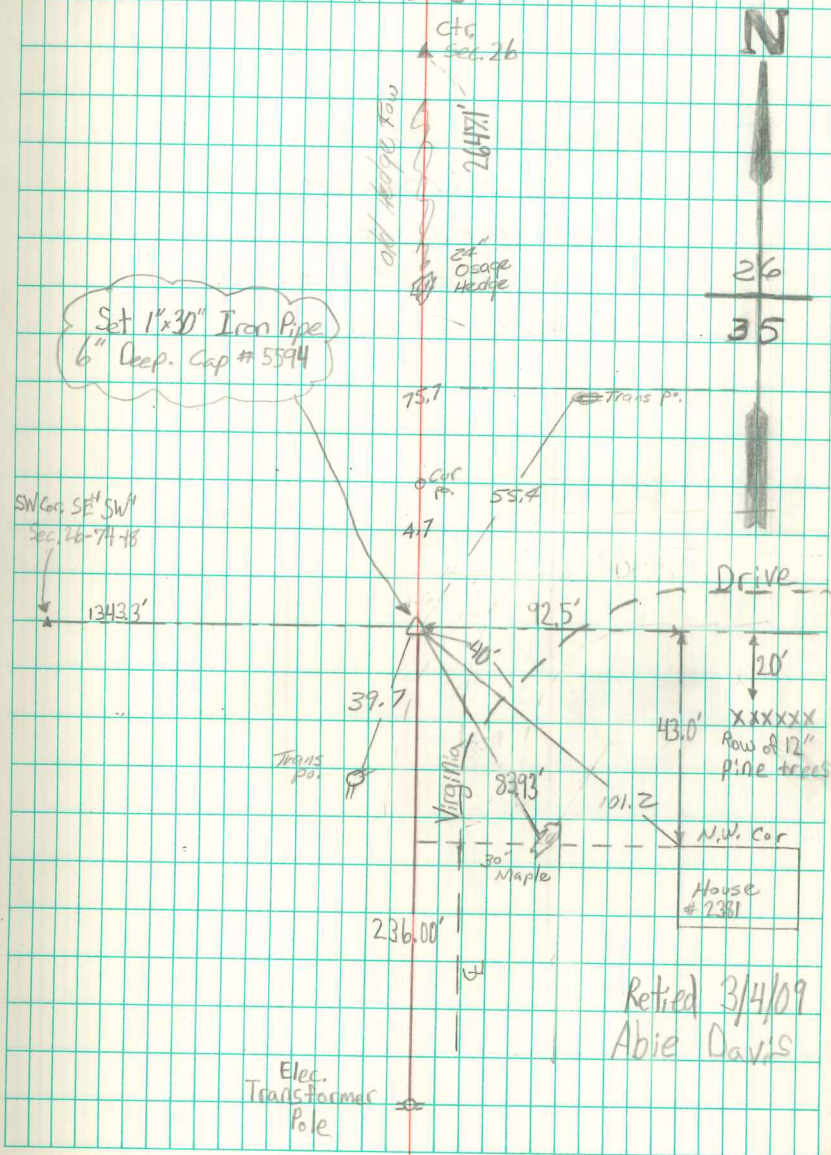 N
Ctr.
Sec. 26
old Hedge Row
2647.1'
24"
Osage
Hedge
26
35
Set 1"x30" Iron Pipe
6" Deep. Cap # 5594
75.7
Trans po.
Cor
po.
55.4
4.7
SW Cor. SE¼ SW¼
Sec. 26-74-18
1343.3'
92.5'
Drive
40'
20'
39.7
43.0'
xxxxxx
Row of 12"
pine trees
Trans
po.
Virginia
83.93'
101.2
30"
Maple
N.W. Cor
House
# 2381
236.00'
Retied 3/4/09
Abie Davis
Elec.
Transformer
Pole